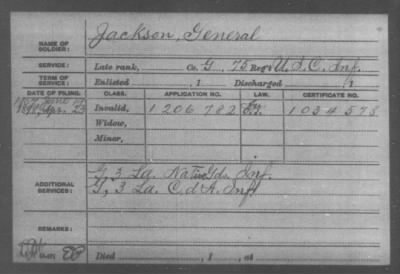 NAME OF SOLDIER: Jackson, General
SERVICE: Late rank, Co. G, 75 Reg't U.S.C. Inf.
TERM OF SERVICE: Enlisted , 1 Discharged , 1
DATE OF FILING. CLASS. APPLICATION NO. LAW. CERTIFICATE NO.
Invalid, 1206782 1034578
Widow,
Minor,
ADDITIONAL SERVICES: G, 3 La. Native Gds. Inf.
G, 3 La. C. d'A. Inf.
REMARKS:
Died , 1 , at